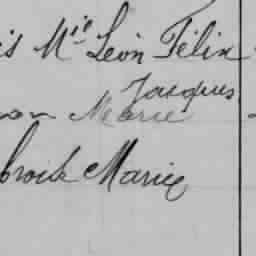 is Mie Léon Félix
Jacques
on Marie
broise Marie